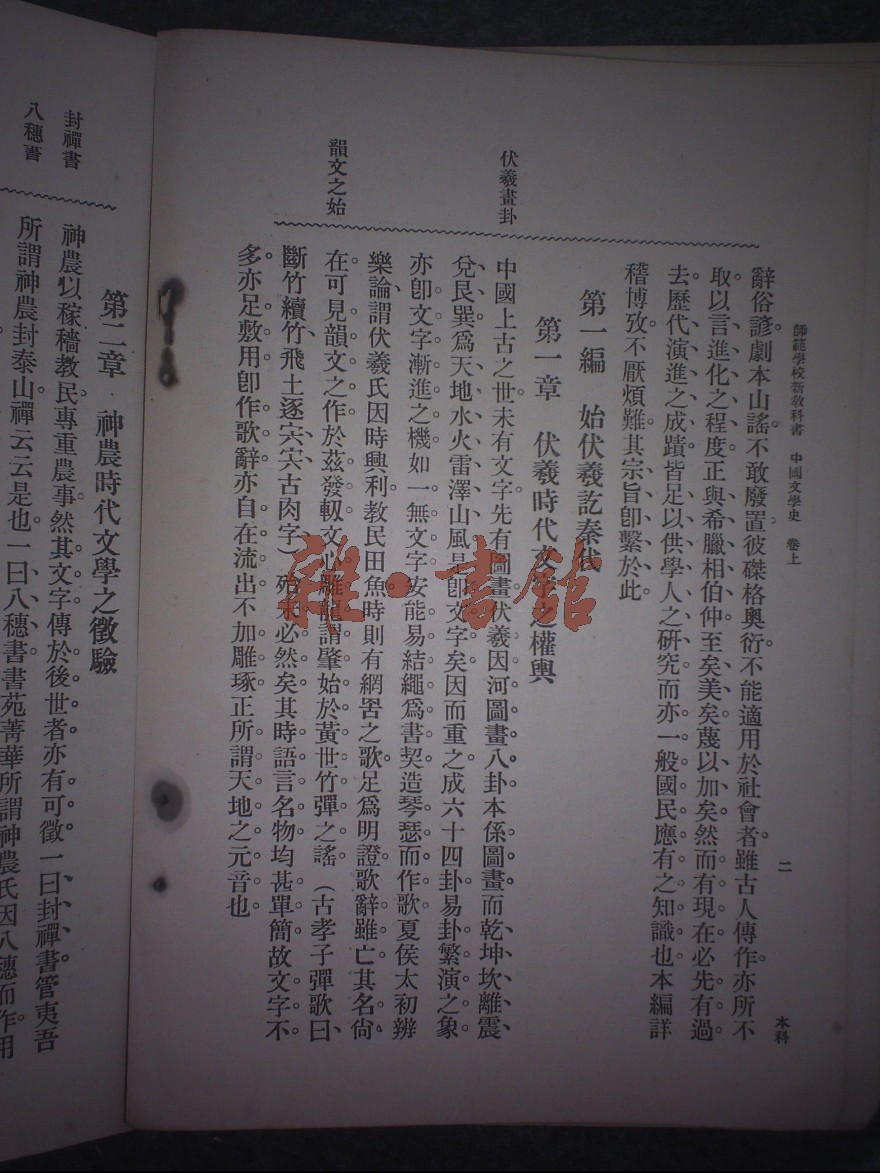 師範學校新敎科書 中國文學史 卷上 二 本科
辭俗諺劇本山謠不敢廢置彼磔格奧衍不能適用於社會者雖古人傳作亦所不
取以言進化之程度正與希臘相伯仲至矣美矣蔑以加矣然而有現在必先有過
去歷代演進之成蹟皆足以供學人之硏究而亦一般國民應有之知識也本編詳
稽博攷不厭煩難其宗旨卽繫於此
第一編 始伏羲訖秦代
第一章 伏羲時代文字之權輿
伏羲畫卦
中國上古之世未有文字先有圖畫伏羲因河圖畫八卦本係圖畫而乾坤坎離震
兌艮巽爲天地水火雷澤山風是卽文字矣因而重之成六十四卦易卦繁演之象
亦卽文字漸進之機如一無文字安能易結繩爲書契造琴瑟而作歌夏侯太初辨
樂論謂伏羲氏因時興利敎民田魚時則有網罟之歌足爲明證歌辭雖亡其名尙
韻文之始
在可見韻文之作於茲發軔文心雕龍謂肇始於黃世竹彈之謠(古孝子彈歌曰
斷竹續竹飛土逐宍宍古肉字)殆未必然矣其時語言名物均甚單簡故文字不
多亦足敷用卽作歌辭亦自在流出不加雕琢正所謂天地之元音也
第二章 神農時代文學之徵驗
封禪書
神農以稼穡敎民專重農事然其文字傳於後世者亦有可徵一曰封禪書管夷吾
八穗書
所謂神農封泰山禪云云是也一曰八穗書書苑菁華所謂神農氏因八穗而作用
雜·書館